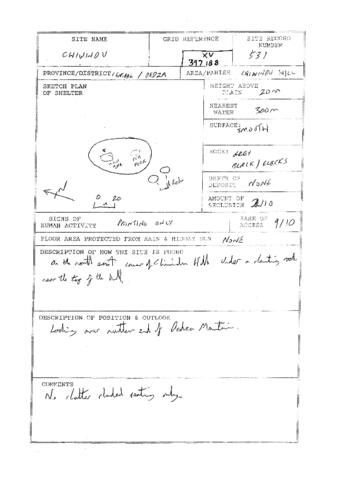 SITE NAME
GRID REFERENCE
SITE RECORD NUMBER
CHIWUWU
XV
397188
531
PROVINCE/DISTRICT
DEDZA
AREA/PARISH
CHIWUWU HILL
SKETCH PLAN OF SHELTER
HEIGHT ABOVE PLAIN 20m
NEAREST WATER 300m
SURFACE:
SMOOTH
ROCK: GREY
BLACK/FLECKS
DEPTH OF DEPOSIT NONE
AMOUNT OF SECLUSION 2/10
N
0 20
SIGNS OF HUMAN ACTIVITY PAINTING ONLY
EASE OF ACCESS 9/10
FLOOR AREA PROTECTED FROM RAIN & MIDDAY SUN NONE
DESCRIPTION OF HOW THE SITE IS FOUND
On the north east corner of Chiwuwu Hill under a slanting rock
near the top of the hill.
DESCRIPTION OF POSITION & OUTLOOK
Looking over northern end of Dedza Mountain.
COMMENTS
No shelter
only.